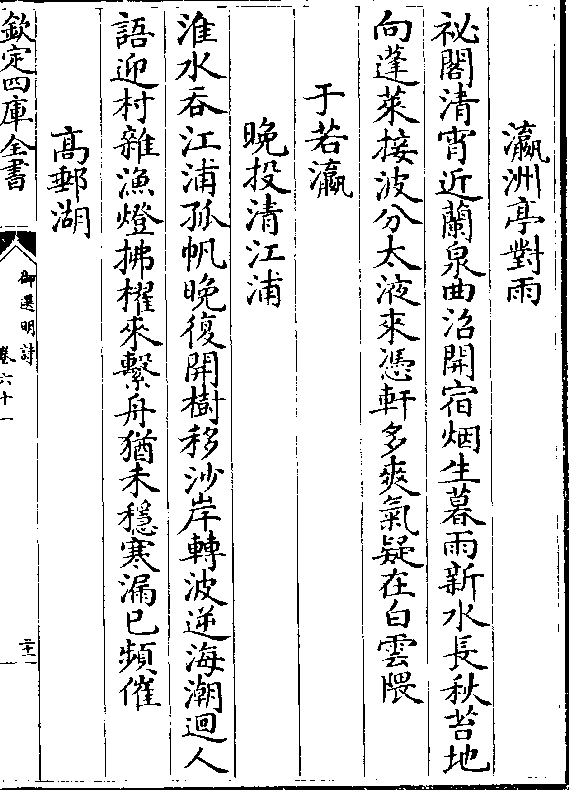 瀛洲亭對雨
祕閣清宵近蘭泉曲沼開宿烟生暮雨新水長秋苔地
向蓬萊接波分太液來憑軒多爽氣疑在白雲隈
于若瀛
晚投清江浦
淮水吞江浦孤帆晚復開樹移沙岸轉波逆海潮迴人
語迎村雜漁燈拂櫂來繫舟猶未穩寒漏已頻催
高郵湖
欽定四庫全書
御選明詩
卷六十一